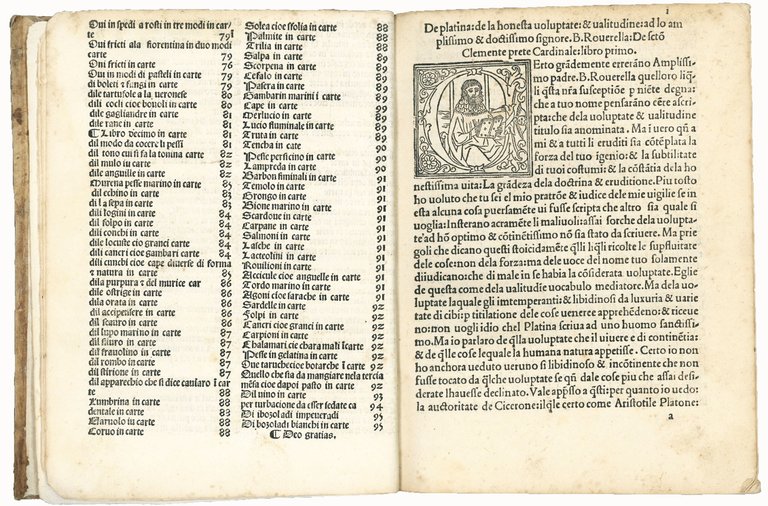 Oui in spedi a rosti in tre modi in car
te 79
Oui fricti ala fiorentina in duo modi
carte 79
Oui fricti in carte 76
Oui in modi di pasteli in carte 79
di boleti & fungi in carte 79
dile tartufole a la veronese 80
dili cochi cioe bonoli in carte 80
dile gagliandre in carte 81
dile rane in carte 81
¶ Libro decimo in carte
dil modo da cocere li pessi 81
dil tono cui si fa la tonina carte 82
dil mulo in carte 82
dile anguille in carte 82
Murena pesse marino in carte 83
dil echino in carte 83
di la sepa in carte 83
dili logini in carte 84
dil folpo in carte 84
dili conchi in carte 84
dile locuste cio granci carte 84
dili cancri cioe gambari carte 84
dili cunchi cioe cape diverse di forma
& natura in carte 85
dila purpura & del murice car 86
dile ostrige in carte 86
dila orata in carte 86
dil accipensere in carte 86
dil scauro in carte 86
dil lupo marino in carte 87
dil siluro in carte 87
dil fravolino in carte 87
dil rombo in carte 87
dil stirione in carte 87
dil apparechio che si dice caviaro ĩ car
te 88
Lumbrina in carte 88
dentale in carte 88
Varuolo in carte 88
Corvo in carte 88
Solea cioe sfolia in carte 88
Palmite in carte 88
Trilia in carte 88
Salpa in carte 89
Scorpena in carte 89
Cefalo in carte 89
Pasera in carte 89
Gambarin marini ĩ carte 89
Cape in carte 89
Merlucio in carte 89
Lucio fluminale in carte 89
Truta in carte 89
Tencha in cate 90
Pesse persicino in carte 90
Lampreda in carte 90
Barbon fiminali in carte 90
Temolo in carte 91
Grongo in carte 91
Bione marino in carte 91
Scardoue in carte 91
Carpane in carte 91
Salmoni in carte 91
Lasche in carte 91
Lacteolini in carte 91
Rovilioni in carte 91
Accicule cioe anguelle in carte 91
Tordo marino in carte 91
Agoni cioe sarache in carte 91
Sardelle in carte 92
Folpi in carte 92
Cancri cioe granci in carte 92
Carpioni in carte 92
Chalamari cioe chara mali ĩ carte 92
Pesse in gelatina in carte 92
Ove taruchecioe botarche ĩ carte 92
Quello che si da mangiare nela tercia
mẽsa cioe dapoi pasto in carte 92
Dil vino in carte 93
per turbacione da esser sedate ca 94
Di ibozoladi impeveradi 95
Di bozoladi bianchi in carte 95
¶ Deo gratias.
1
De platina: de la honesta uoluptate: & ualitudine: ad lo am
plissimo & doctissimo signore. B. Rouerella: De sctõ
Clemente prete Cardinale: libro primo.
Erto grãdemente erreráno Amplissi
mo padre. B. Rouerella quelloro liq̃
li q̃sta nr̃a susceptiõe p niẽte degna:
che a tuo nome pensaráno cẽre ascri
pta: che dela uoluptate & ualitudine
titulo sia anominata. Ma ĩ uero qñ a
mi & a tutti li eruditi sia cõtẽplata la
forza del tuo ĩgenio: & la subtilitate
di tuoi costumi: & la cõstãtia dela ho
nestissima uita: La grãdeza dela doctrina & eruditione. Piu tosto
ho uoluto che tu sei el mio pratrõe & iudice dele mie uigilie se in
esta alcuna cosa puersamẽte ui fusse scripta che altro sia quale si
uoglia: Insterano acramẽte li maliuoli: assai forsche dela uolupta
te'ad hõ optimo & cõtinẽtissimo nõ sia stato da scriuere. Ma prie
goli che dicano questi stoicidamẽte q̃lli liq̃li ricolte le supfluitate
dele cose: non dela forza: ma dele uoce del nome tuo solamente
diiudicano: che di male in se habia la cõsiderata uoluptate. Eglie
de questa come dela ualitudie uocabulo mediatore. Ma dela uo
luptate laquale gli imtemperanti: & libidinosi da luxuria & uarie
tate di cibi: p titilatione dele cose ueneree apprehẽdeno: & riceue
no: non uogli idio chel Platina scriua ad uno huomo sanctissi-
mo. Ma io parlaro de q̃lla uoluptate che il uiuere e di continẽtia:
& de q̃lle cose lequale la humana natura appetisse. Certo io non
ho anchora ueduto ueruno si libidinoso & incõtinente che non
fusse tocato da q̃lche uoluptate se qñ dale cose piu che assai desi-
derate lhauesse declinato. Vale app̃sso a q̃sti: per quanto io uedo:
la auctoritate de Cicerone: ilq̃le certo come Aristotile Platone:
a